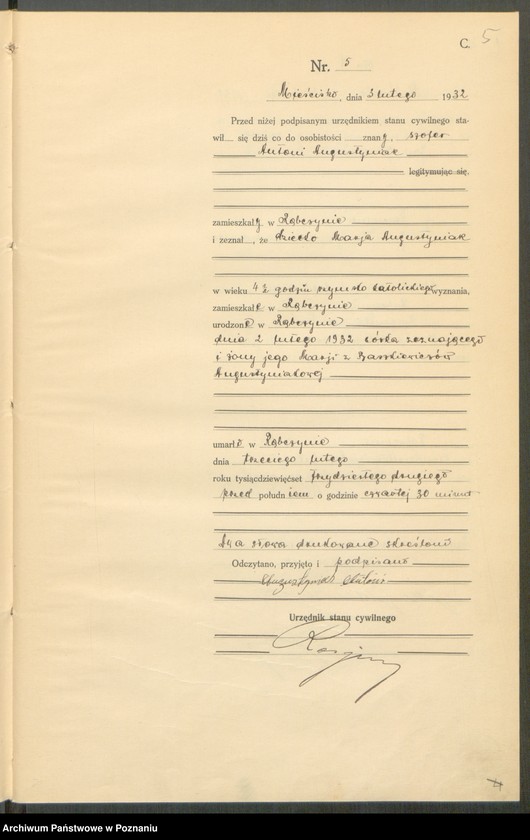 C. 5
Nr. 5
Mieścisko, dnia 3 lutego 1932
Przed niżej podpisanym urzędnikiem stanu cywilnego sta-
wił się dziś co do osobistości znany, szofer
Antoni Augustyniak
legitymując się.
zamieszkały w Rąbczynie
i zeznał, że dziecko Marja Augustyniak
w wieku 4½ godzin rzymsko katolickiego wyznania,
zamieszkałe w Rąbczynie
urodzone w Rąbczynie
dnia 2 lutego 1932 córka zeznającego
i żony jego Marji z
Augustyniakowej
umarło w Rąbczynie
dnia trzeciego lutego
roku tysiącdziewięćset trzydziestego drugiego
przed południem o godzinie czwartej 30 minut
Dwa słowa drukowane skreślono
Odczytano, przyjęto i podpisano
Augustyniak Antoni
Urzędnik stanu cywilnego
4
Archiwum Państwowe w Poznaniu